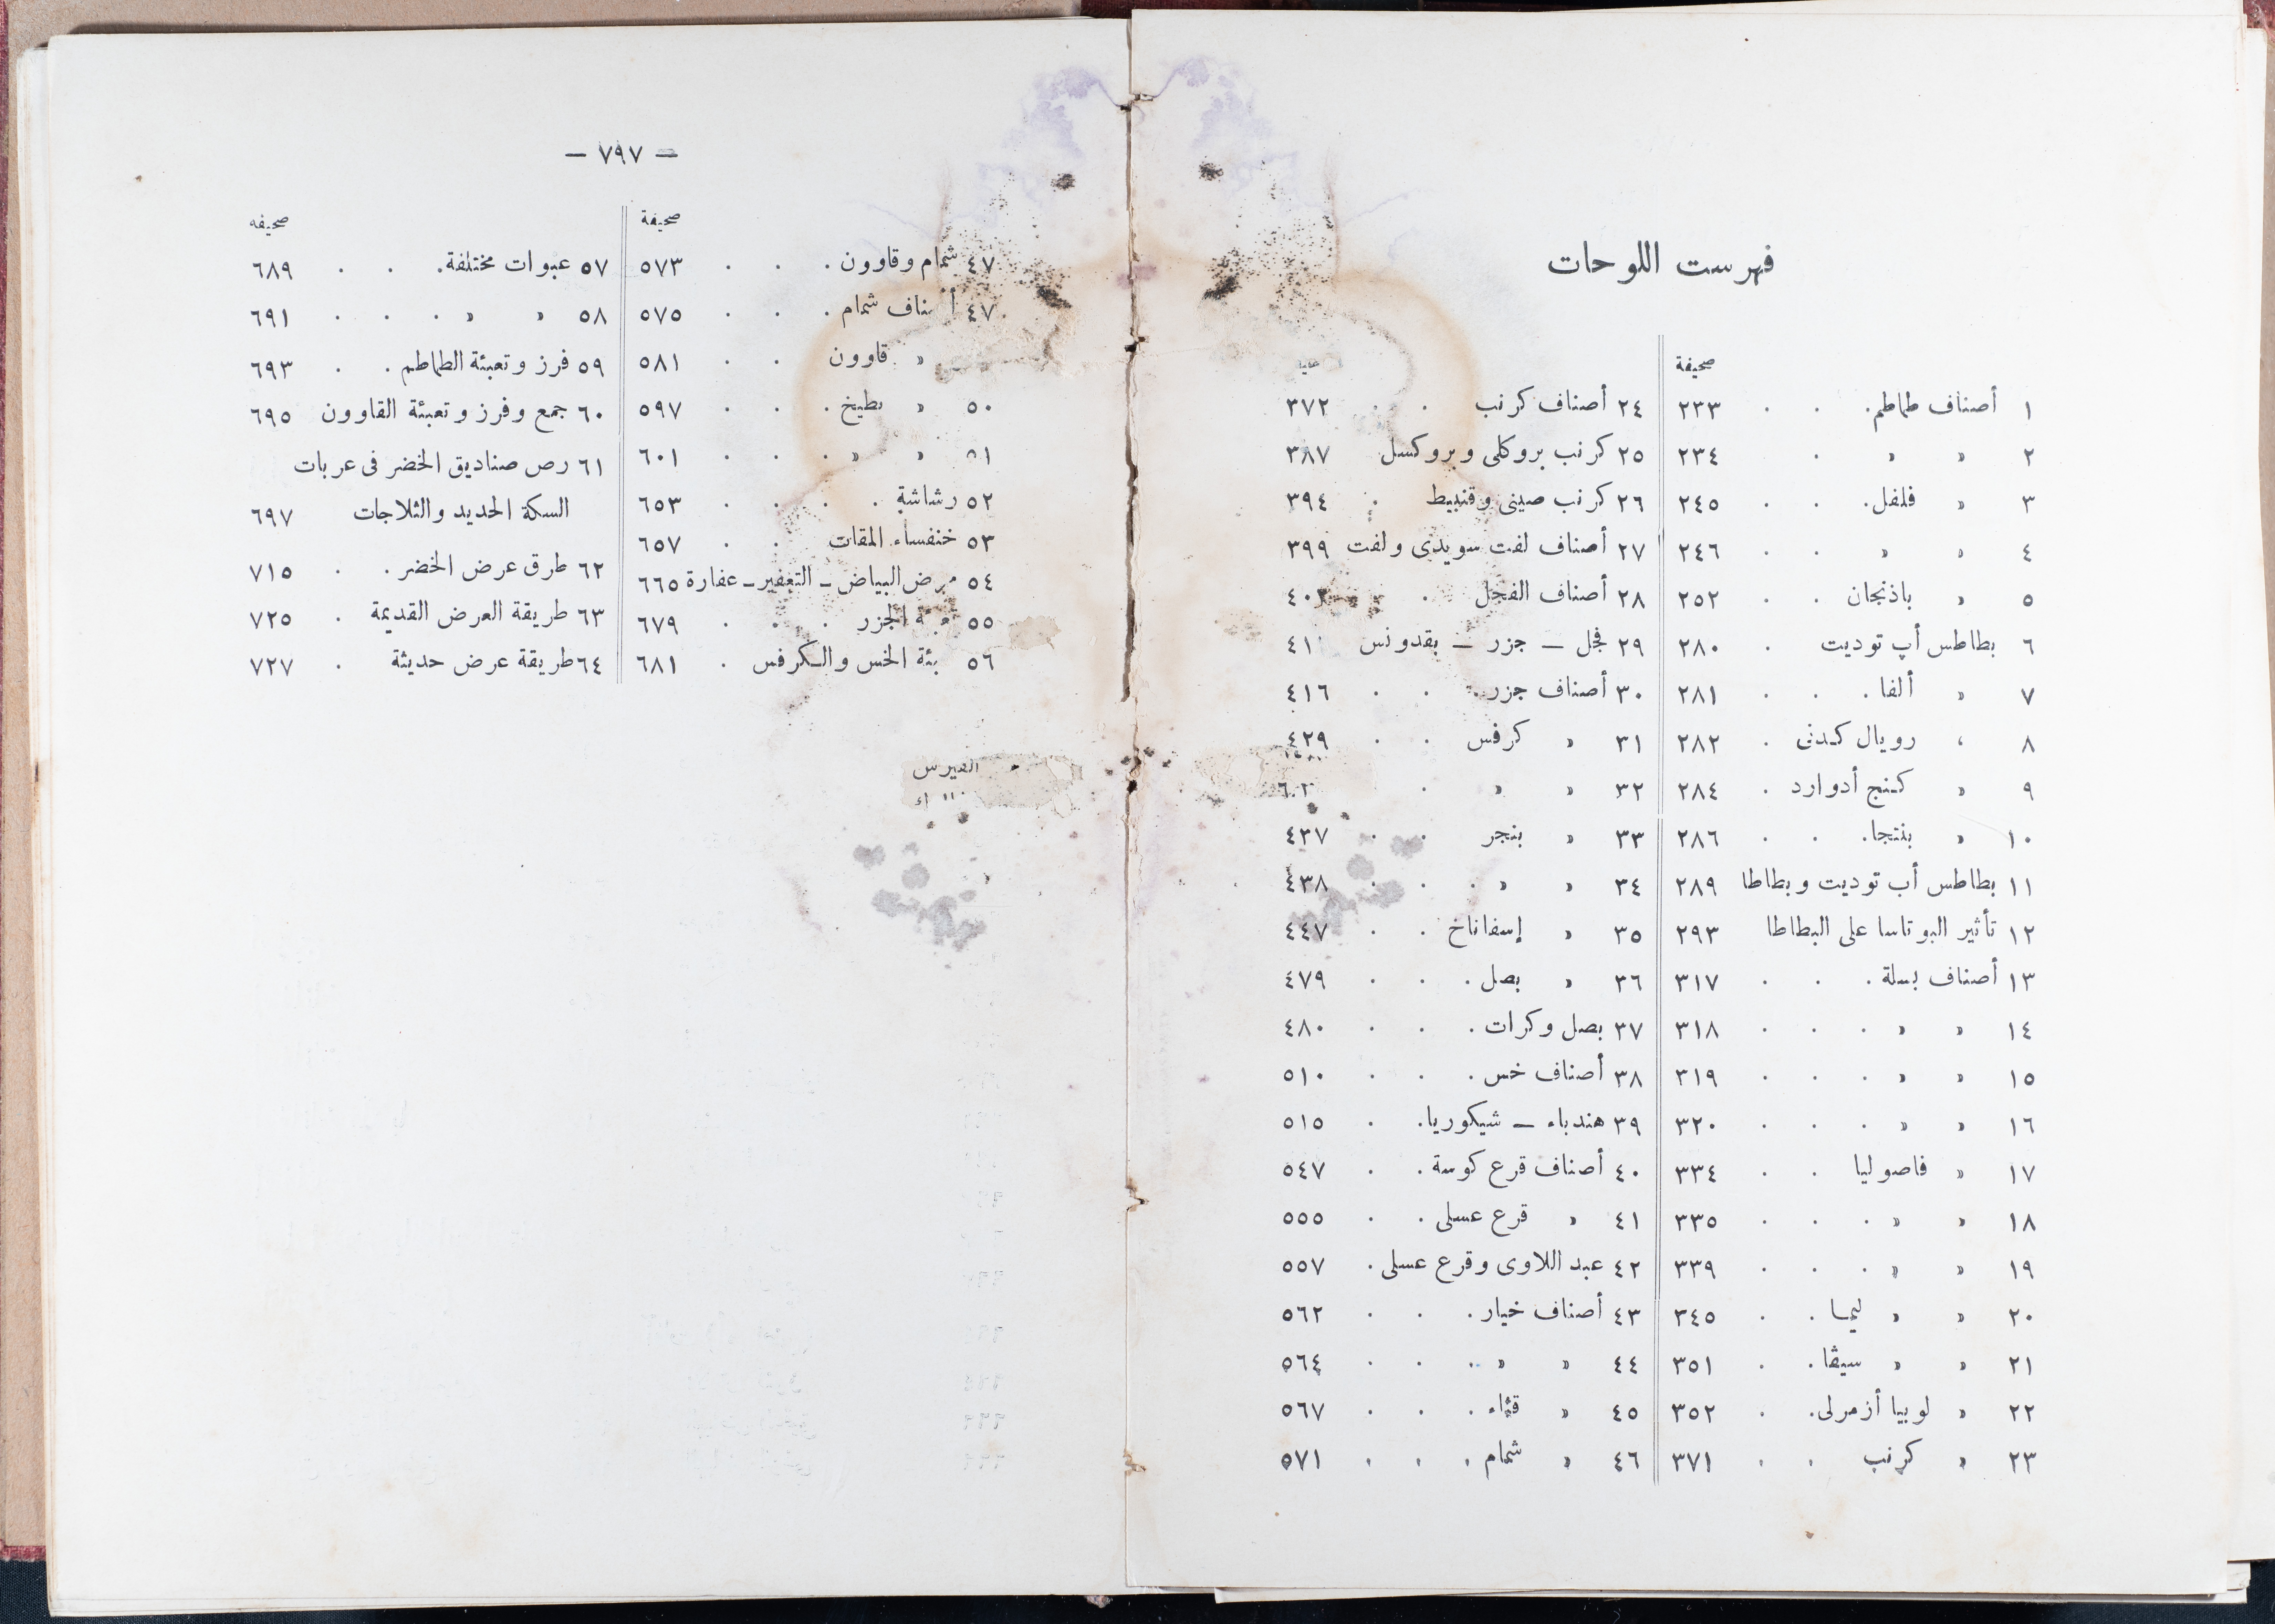 فهرست اللوحات
صحيفة
١ أصناف طماطم . . . ٢٣٣
٢ » » . ٢٣٤
٣ » فلفل . . . ٢٤٥
٤ » » . . ٢٤٦
٥ » باذنجان . . ٢٥٢
٦ بطاطس أپ توديت . ٢٨٠
٧ » ألفا . . . ٢٨١
٨ » رويال كدنى . ٢٨٢
٩ » كنج أدوارد . ٢٨٤
١٠ » بنتجا . . . ٢٨٦
١١ بطاطس أب توديت وبطاطا ٢٨٩
١٢ تأثير البوتاسا على البطاطا ٢٩٣
١٣ أصناف بسلة . . . ٣١٧
١٤ » » . . . . ٣١٨
١٥ » » . . . . ٣١٩
١٦ » » . . . . ٣٢٠
١٧ » فاصوليا . . ٣٣٤
١٨ » » . . . . ٣٣٥
١٩ » » . . . . ٣٣٩
٢٠ » » ليما . . ٣٤٥
٢١ » » سيڤا . . ٣٥١
٢٢ » لوبيا أزمرلى . . ٣٥٢
٢٣ » كرنب . . ٣٧١
٢٤ أصناف كرنب . . ٣٧٢
٢٥ كرنب بروكلى وبروكسل ٣٨٧
٢٦ كرنب صينى وقنبيط . ٣٩٤
٢٧ أصناف لفت سويدى ولفت ٣٩٩
٢٨ أصناف الفجل .
٢٩ فجل — جزر — بقدونس
٣٠ أصناف جزر . . . ٤١٦
٣١ » كرفس . . ٤٢٩
٣٢ » » .
٣٣ » بنجر . . ٤٣٧
٣٤ » » . . . ٤٣٨
٣٥ » إسفاناخ . . ٤٤٧
٣٦ » بصل . . . ٤٧٩
٣٧ بصل وكرات . . . ٤٨٠
٣٨ أصناف خس . . . ٥١٠
٣٩ هندباء — شيكوريا . . ٥١٥
٤٠ أصناف قرع كوسة . . ٥٤٧
٤١ » قرع عسلى . . ٥٥٥
٤٢ عبد اللاوى وقرع عسلى . ٥٥٧
٤٣ أصناف خيار . . . ٥٦٢
٤٤ » » . . . ٥٦٤
٤٥ » قثاء . . . ٥٦٧
٤٦ » شمام . . . . ٥٧١
— ٧٩٧ —
صحيفة
٤٧ شمام وقاوون . . . ٥٧٣
٤٧ أصناف شمام . . . ٥٧٥
» قاوون . . ٥٨١
٥٠ » بطيخ . . . ٥٩٧
» » . . . ٦٠١
٥٢ رشاشة . . . . ٦٥٣
٥٣ خنفساء المقات . . ٦٥٧
٥٤ مرض البياض — التعفير — عفارة ٦٦٥
٥٥ الجزر . . . ٦٧٩
٥٦ الخس والكرفس . ٦٨١
صحيفه
٥٧ عبوات مختلفة . . . ٦٨٩
٥٨ » » . . . ٦٩١
٥٩ فرز وتعبئة الطماطم . . ٦٩٣
٦٠ جمع وفرز وتعبئة القاوون ٦٩٥
٦١ رص صناديق الخضر فى عربات
السكة الحديد والثلاجات ٦٩٧
٦٢ طرق عرض الخضر . . ٧١٥
٦٣ طريقة العرض القديمة . ٧٢٥
٦٤ طريقة عرض حديثة . ٧٢٧